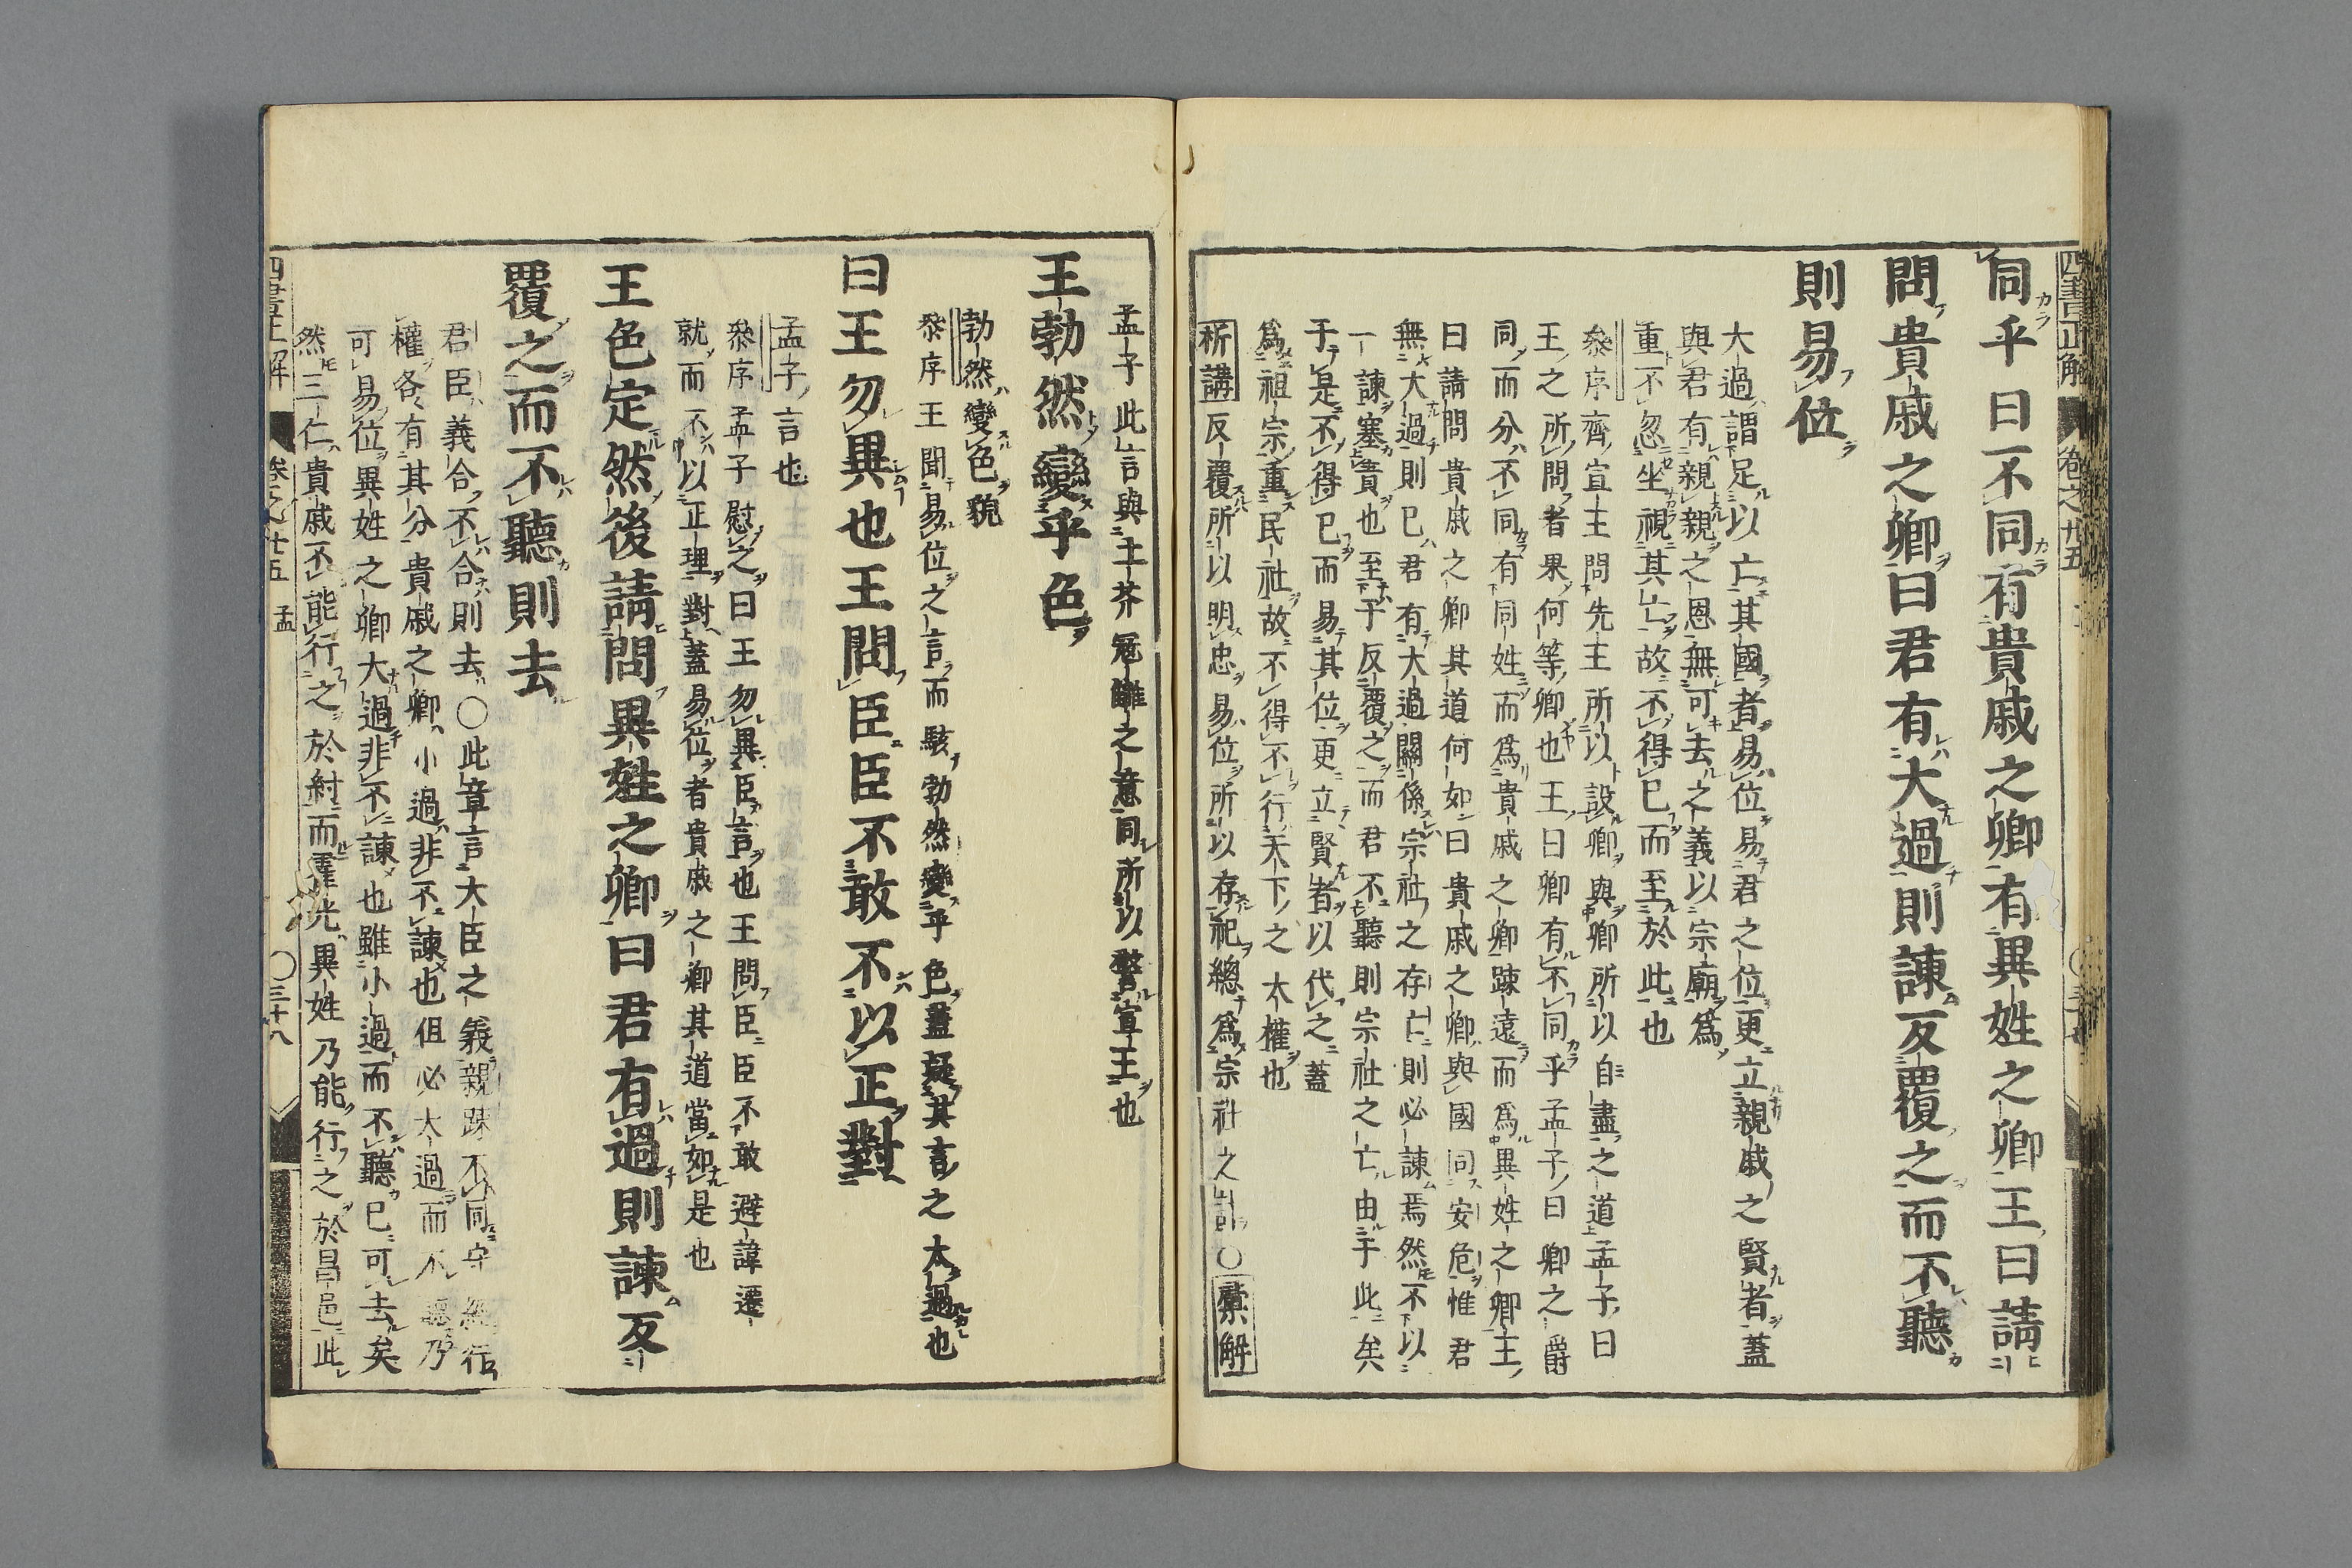 四書正解 卷之廿五
同乎曰不同有貴戚之卿有異姓之卿王曰請
問貴戚之卿曰君有大過則諫反覆之而不聽
則易位
大過謂足以亡其國者易位易君之位更立親戚之賢者蓋
與君有親親之恩無可去之義以宗廟爲
重不忍坐視其亡故不得已而至於此也
叅序齊宣王問先王所以設卿與卿所以自盡之道孟子曰
王之所問者果何等卿也王曰卿有不同乎孟子曰卿之爵
同而分不同有同姓而爲貴戚之卿踈遠而爲異姓之卿王
曰請問貴戚之卿其道何如曰貴戚之卿與國同安危惟君
無大過則已君有大過關係宗社之存亡則必諫焉然不以
一諫塞責也至于反覆之而君不聽則宗社之亡由于此矣
于是不得已而易其位更立賢者以代之蓋
爲祖宗重民社故不得不行天下之大權也
析講反覆所以明忠易位所以存祀總爲宗社之計〇纂觧
孟子此言與土芥冦讎之意同所以警宣王也
王勃然變乎色
勃然變色貌
叅序王聞易位之言而駭勃然變乎色蓋疑其言之太過也
曰王勿異也王問臣臣不敢不以正對
孟子言也
叅序孟子慰之曰王勿異臣言也王問臣臣不敢避諱遷
就而不以正理對蓋易位者貴戚之卿其道當如是也
王色定然後請問異姓之卿曰君有過則諫反
覆之而不聽則去
君臣義合不合則去〇此章言大臣之義親踈不同守經行
權各有其分貴戚之卿小過非不諫也但必大過而不聽乃
可易位異姓之卿大過非不諫也雖小過而不聽已可去矣
然三仁貴戚不能行之於紂而霍光異姓乃能行之於昌邑此
四書正解 卷之廿五 孟 〇三十八